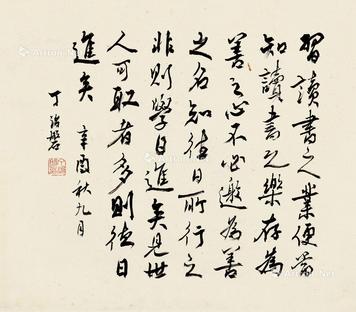 習讀書之業便當
知讀書之樂存為
善之心不必邀為善
之名知往日所行之
非則學日進矣見世
人可取者多則德日
進矣
辛酉秋九月
丁治磐